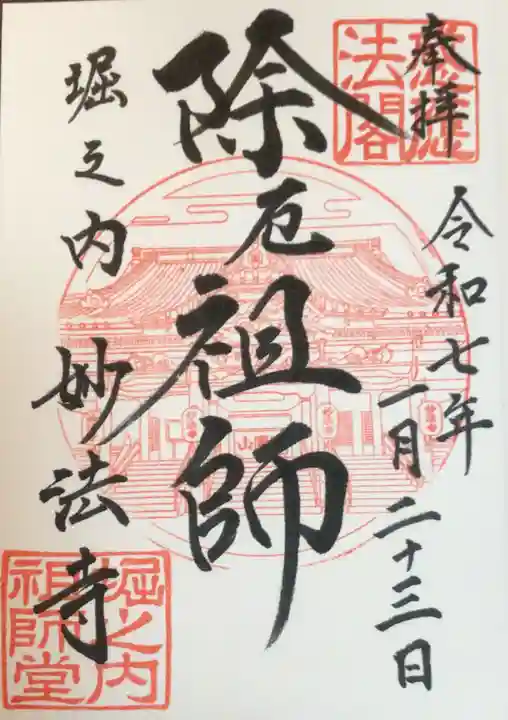 奉拝
令和七年
一月二十三日
除厄祖師
堀之内妙法寺
法閣
堀之内
祖師堂